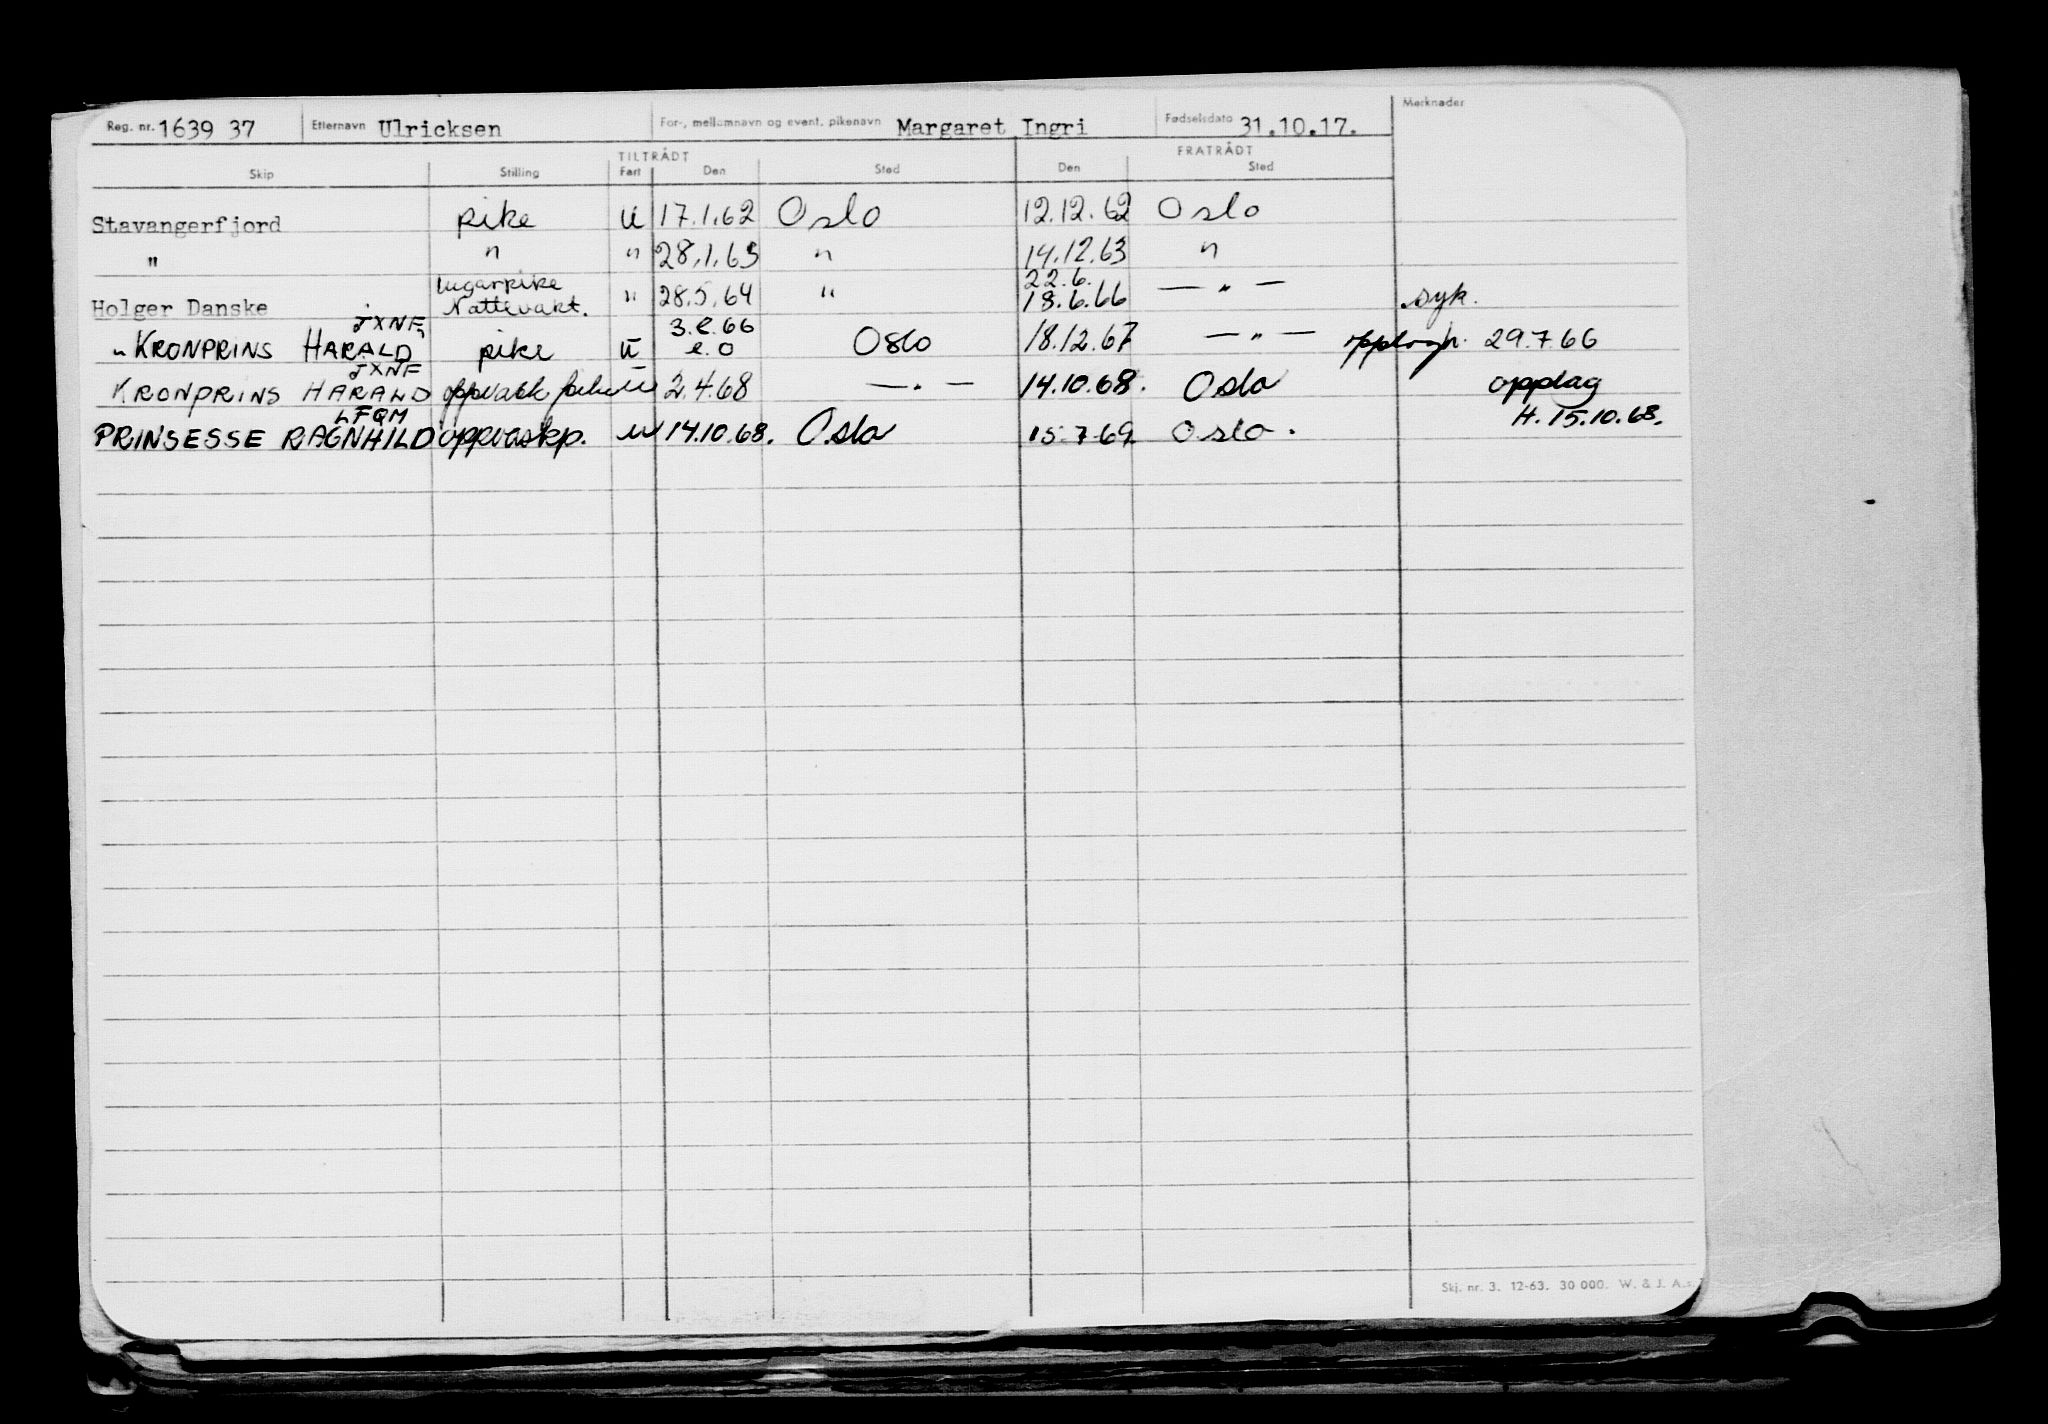 Reg. nr. 1639 37 Etternavn Ulricksen For-, mellomnavn og event. pikenavn Margaret Ingri Fødselsdato 31.10.17. Merknader
TILTRÅDT FRATRÅDT
Skip Stilling Fart Den Sted Den Sted
Stavangerfjord pike U 17.1.62 Oslo 12.12.62 Oslo
" " " 28.1.63 " 14.12.63 "
lugarpike 22.6.
Holger Danske Nattevakt. " 28.5.64 " 18.6.66 — " — syk.
JXNF 3.2.66
" KRONPRINS HARALD pike U e.o Oslo 18.12.67 — " — 29.7.66
JXNF
KRONPRINS HARALD U 2.4.68 — " — 14.10.68. Oslo opplag
LFQM H. 15.10.68.
PRINSESSE RAGNHILD oppvaskp. U 14.10.68. Oslo 15.7.69 Oslo.
Skj. nr. 3. 12-63. 30 000. W. & J. A.s.